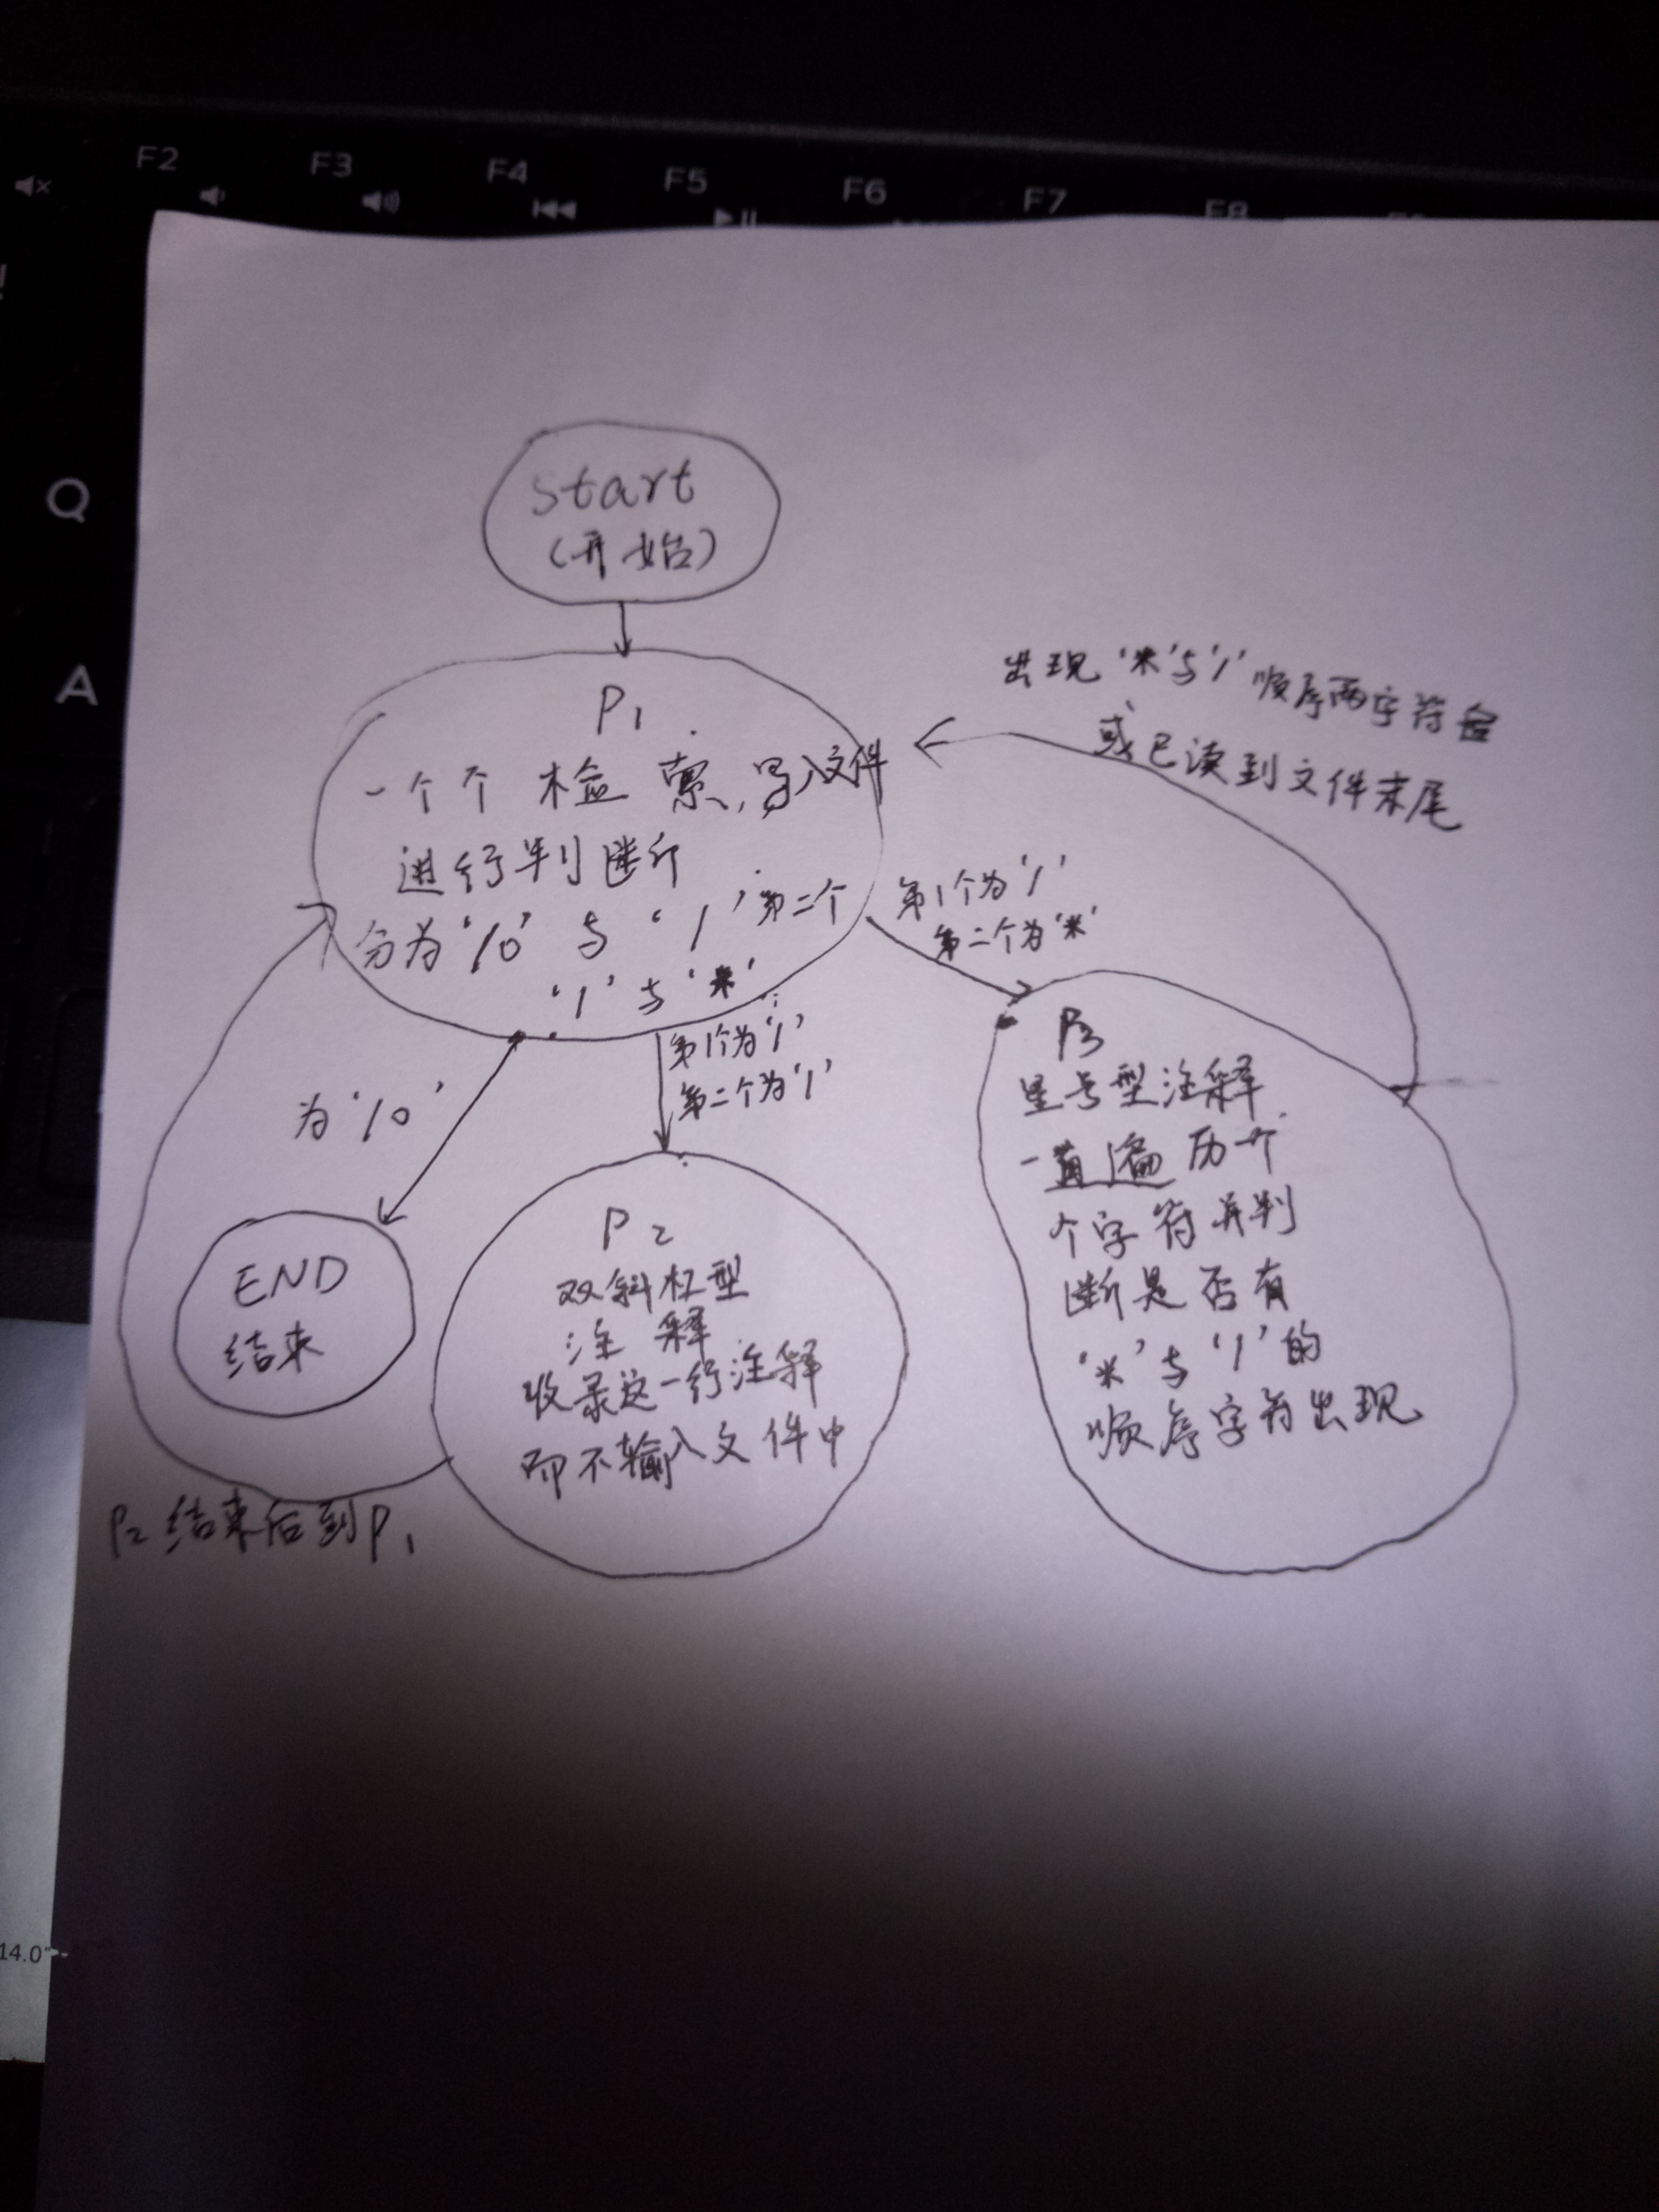 F2
F3
F4
F5
F6
F7
F8
Q
A
start
(开始)
P1
一个个检索,写入文件
进行判断
分为'\0'与'/'第二个
'/'与'*'
出现'*'与'/'顺序两字符
或已读到文件末尾
第1个为'/'
第二个为'*'
第1个为'/'
第二个为'/'
为'\0'
END
结束
P2
双斜杠型
注释
收录这一行注释
而不输入文件中
P2结束后到P1
P3
星号型注释
一直遍历一个
个字符并判
断是否有
'*'与'/'的
顺序字符出现
14.0"